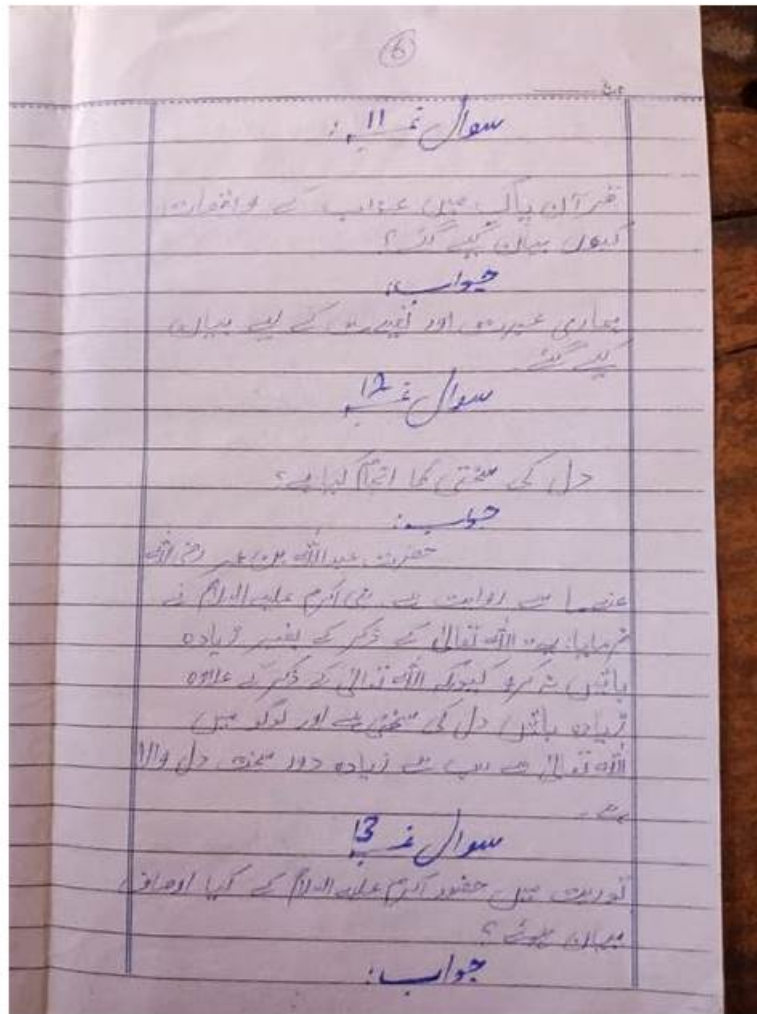 6
سوال نمبر 11 :
قرآن پاک میں عذاب کے واقعات
کیوں بیان کیے گئے؟
جواب:
ہماری عبرت اور نصیحت کے لیے بیان
کیے گئے۔
سوال نمبر 12
دل کی سختی کا انجام کیا ہے؟
جواب:
حضرت عبداللہ بن عمر رضی اللہ
عنہما سے روایت ہے۔ نبی اکرم علیہ السلام نے
فرمایا: اللہ تعالیٰ کے ذکر کے بغیر زیادہ
باتیں نہ کرو کیونکہ اللہ تعالیٰ کے ذکر کے علاوہ
زیادہ باتیں دل کی سختی ہے اور لوگو میں
اللہ تعالیٰ سے سب سے زیادہ دور سخت دل والا
ہے۔
سوال نمبر 13
توریت میں حضور اکرم علیہ السلام کے کیا اوصاف
بیان ہوئے؟
جواب: